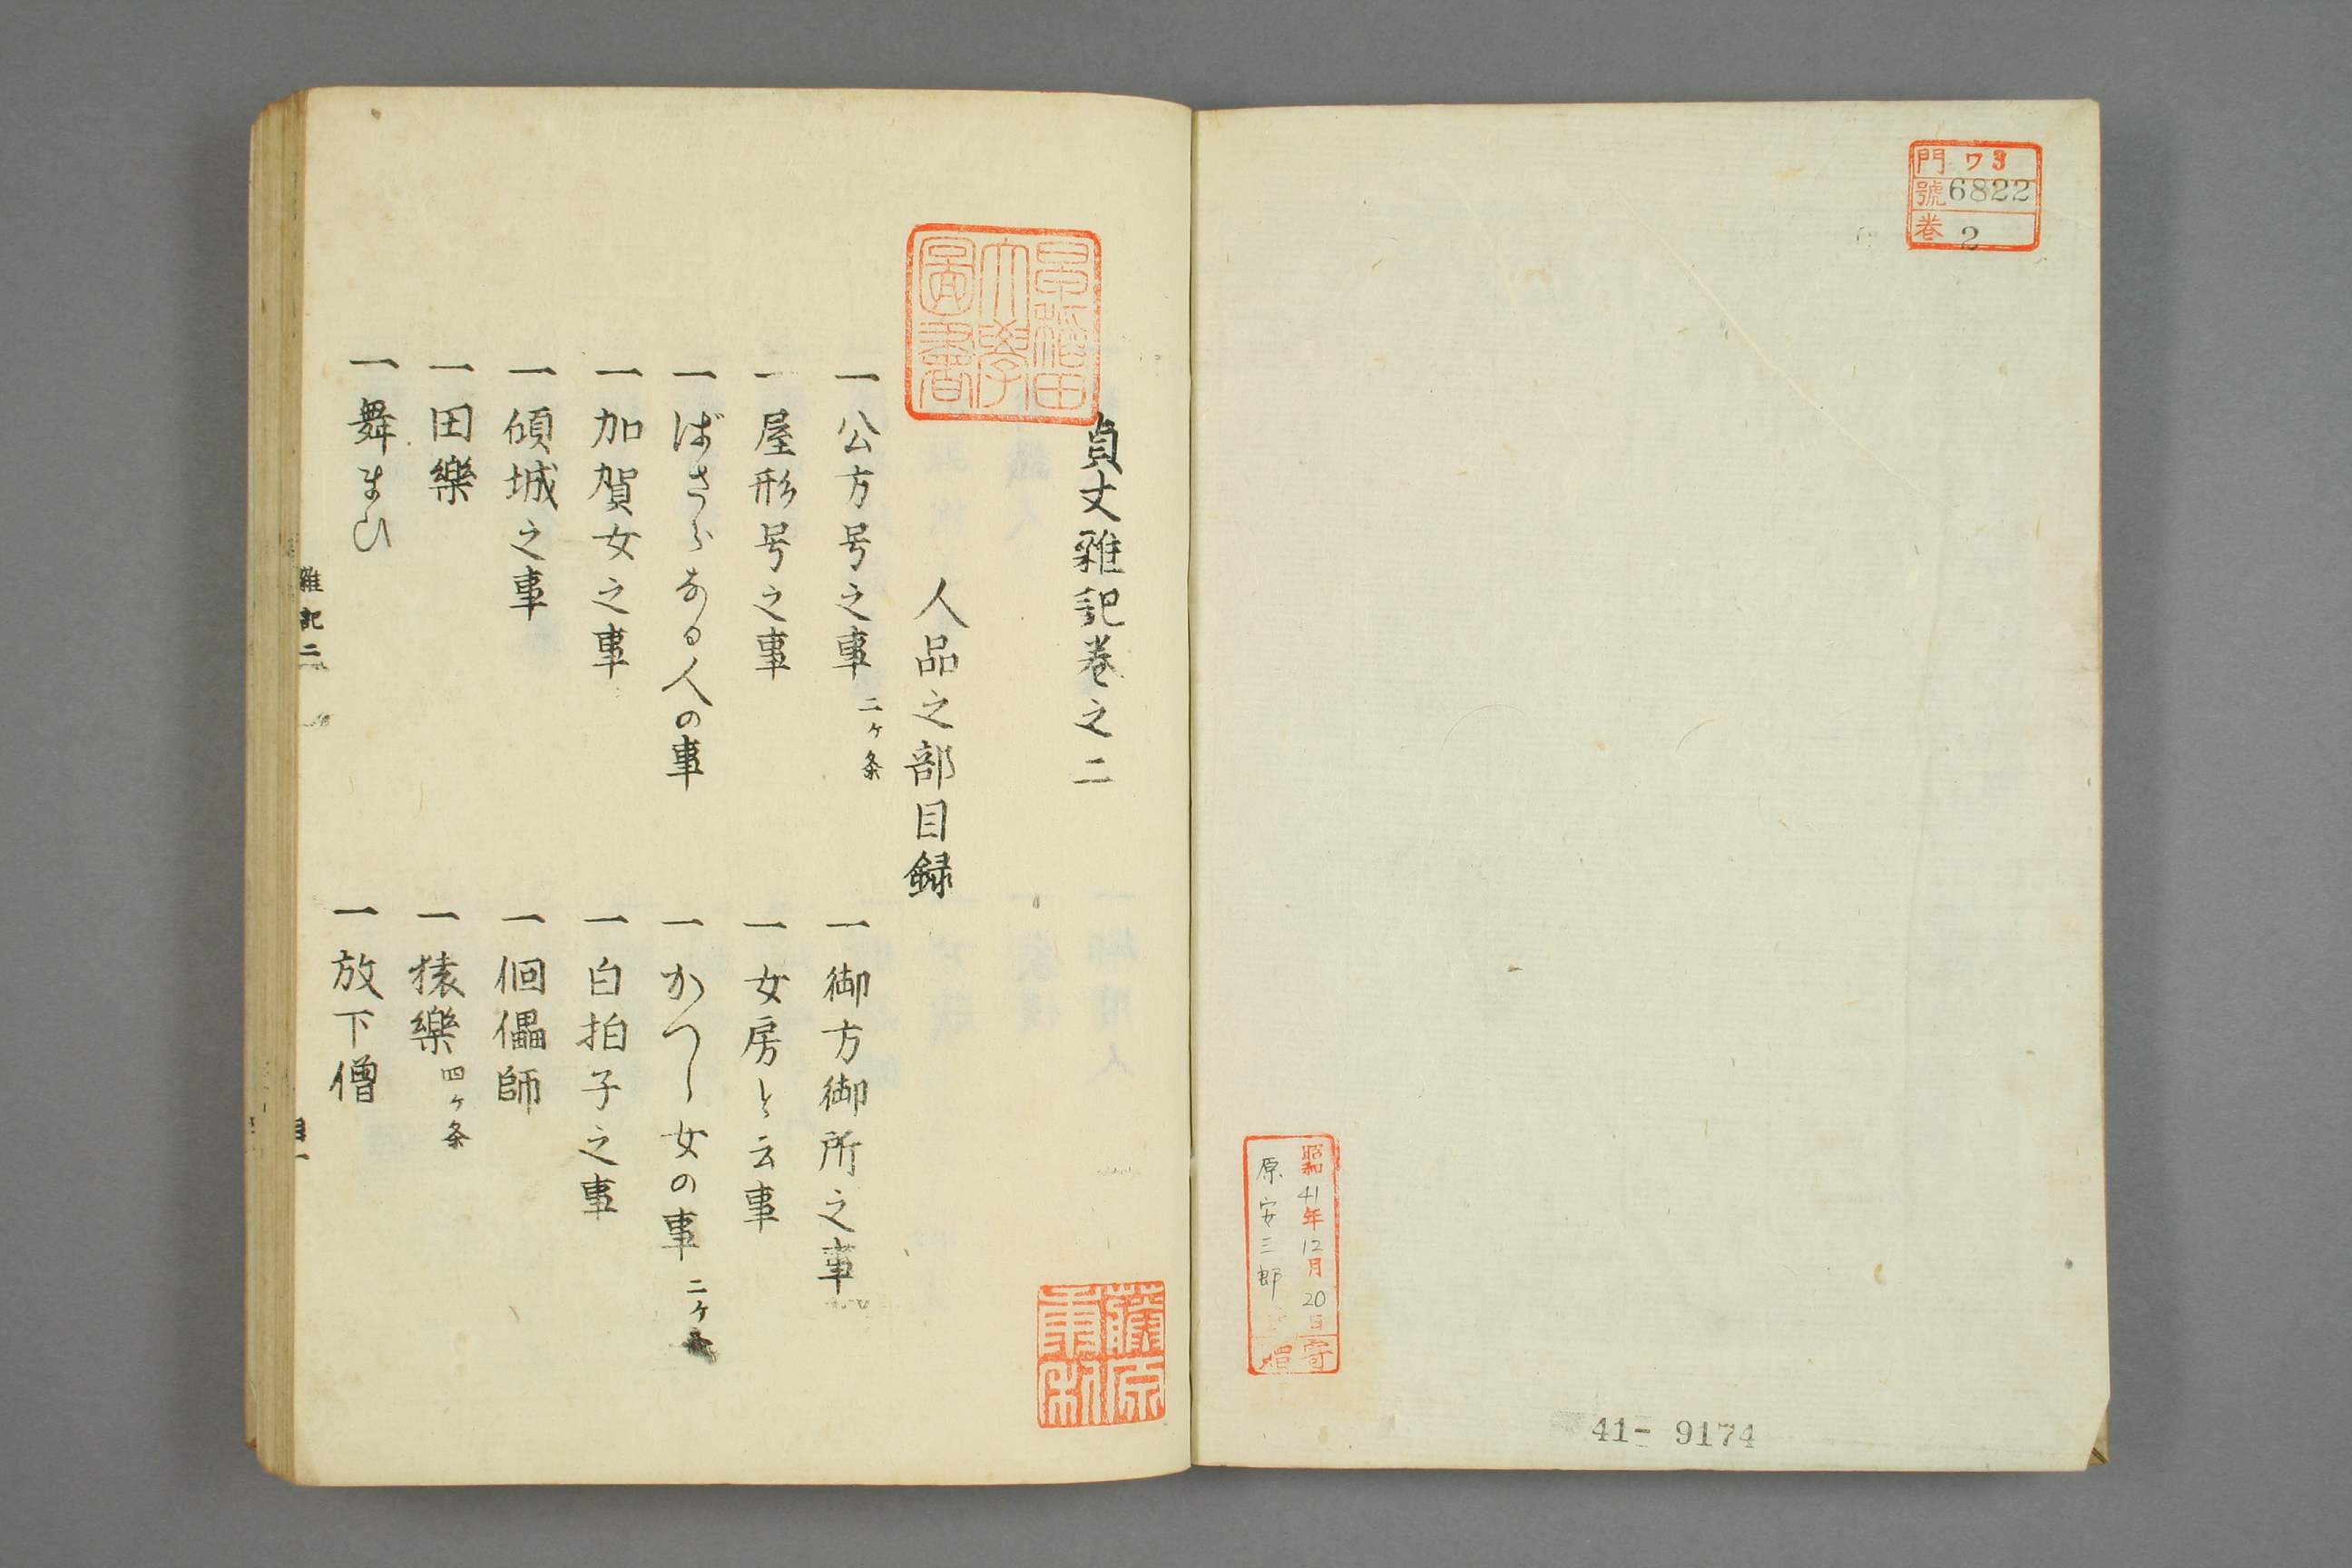 門 ワ3
號 6822
卷 2
昭和41年12月20日
原安三郎
寄贈
41- 9174
早稲田
大學
圖書
貞丈雑記巻之二
人品之部目録
一公方号之事 二ケ条
一御方御所之事
一屋形号之事
一女房と云事
一ばさらなる人の事
一かつら女の事 二ケ条
一加賀女之事
一白拍子之事
一傾城之事
一傀儡師
一田樂
一猿樂 四ケ条
一舞まひ
一放下僧
藤原
雑記二
目一